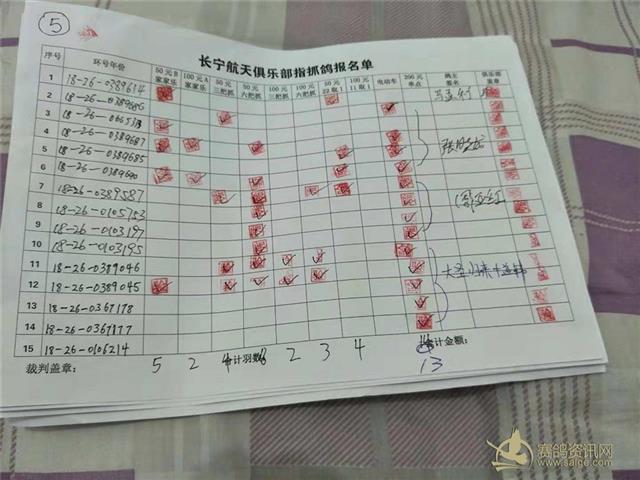 5
长宁航天俱乐部指抓鸽报名单
序号 环号年份 50元B家家乐 100元A家家乐 50元三把抓 50元六把抓 100元三把抓 100元六把抓 50元22取1 100元11取1 电动车 200元单点 鸽主签名 俱乐部盖章
1 18-26-0389614
2 18-26-0389686
3 18-26-0665318
4 18-26-0389687
5 18-26-0389685
6 18-26-0389690
7 18-26-0389587
8 18-26-0105753
9 18-26-0103197
10 18-26-0103195
11 18-26-0389046
12 18-26-0389045
13 18-26-0367178
14 18-26-0367177
15 18-26-0106214
裁判盖章: 5 2 4 合计羽数 2 3 4 合计金额:
13
赛鸽资讯网
www.saige.com